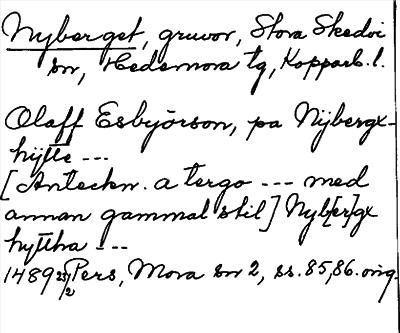 Nyberget, gruvor, Stora Skedvi
sn, Hedemora tg, Kopparb. l.
Olaff Esbjörson, pa Nijbergx-
hijtte ---
[Anteckn. a tergo --- med
annan gammal stil] Nyb[er]gx
hyttha ---
1489 23/2 Pers, Mora sn 2, ss. 85, 86. orig.